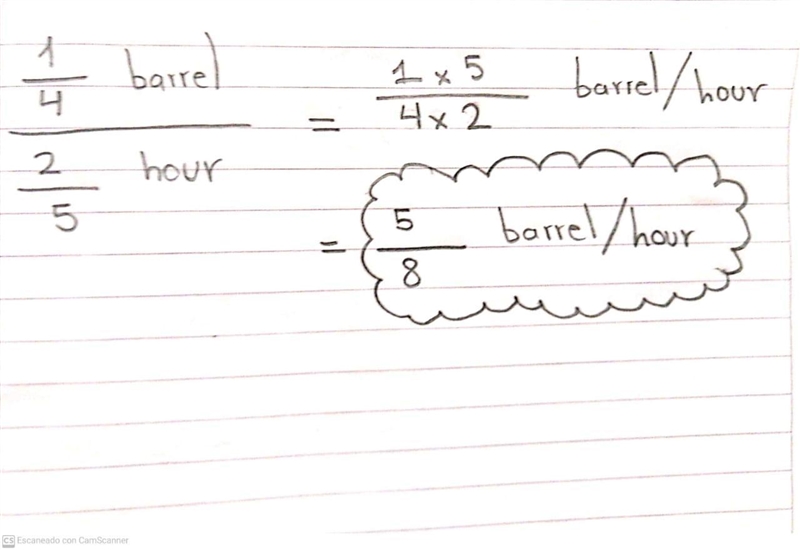 1/4 barrel / 2/5 hour = 1 x 5 / 4 x 2 barrel/hour
= 5/8 barrel/hour
CS Escaneado con CamScanner